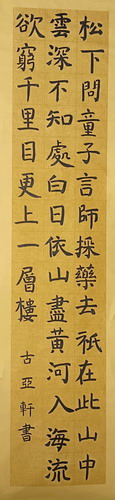 松下問童子言師採藥去祇在此山中
雲深不知處白日依山盡黃河入海流
欲窮千里目更上一層樓
古亞軒書